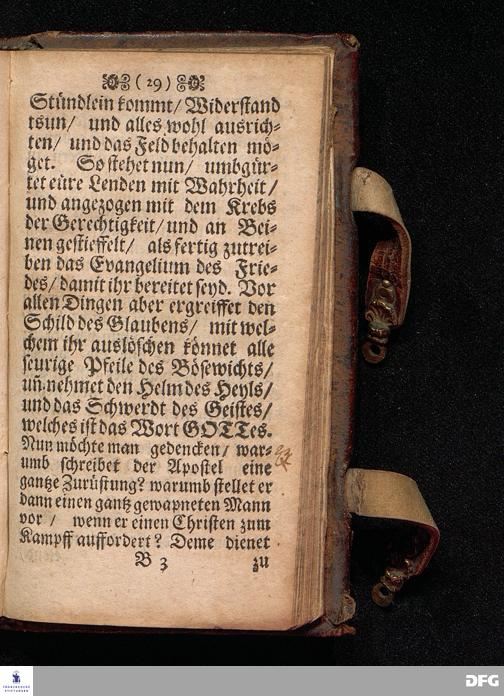 ( 29 )
Stündlein kommt/ Widerstand
tsun/ und alles wohl ausrich-
ten/ und das Feld behalten mö-
get. So stehet nun/ umbgür-
tet eüre Lenden mit Wahrheit/
und angezogen mit dem Krebs
der Gerechtigkeit/ und an Bei-
nen gestieffelt/ als fertig zutrei-
ben das Evangelium des Frie-
des/ damit ihr bereitet seyd. Vor
allen Dingen aber ergreiffet den
Schild des Glaubens/ mit wel-
chem ihr auslöschen könnet alle
feurige Pfeile des Bösewichts/
uñ nehmet den Helm des Heyls/
und das Schwerdt des Geistes/
welches ist das Wort GOTTes.
Nun möchte man gedencken/ war-
umb schreibet der Apostel eine
gantze Zurüstung? warumb stellet er
dann einen gantz gewapneten Mann
vor/ wenn er einen Christen zum
Kampff auffordert? Deme dienet
B 3 zu
FRANCKESCHE
STIFTUNGEN
DFG